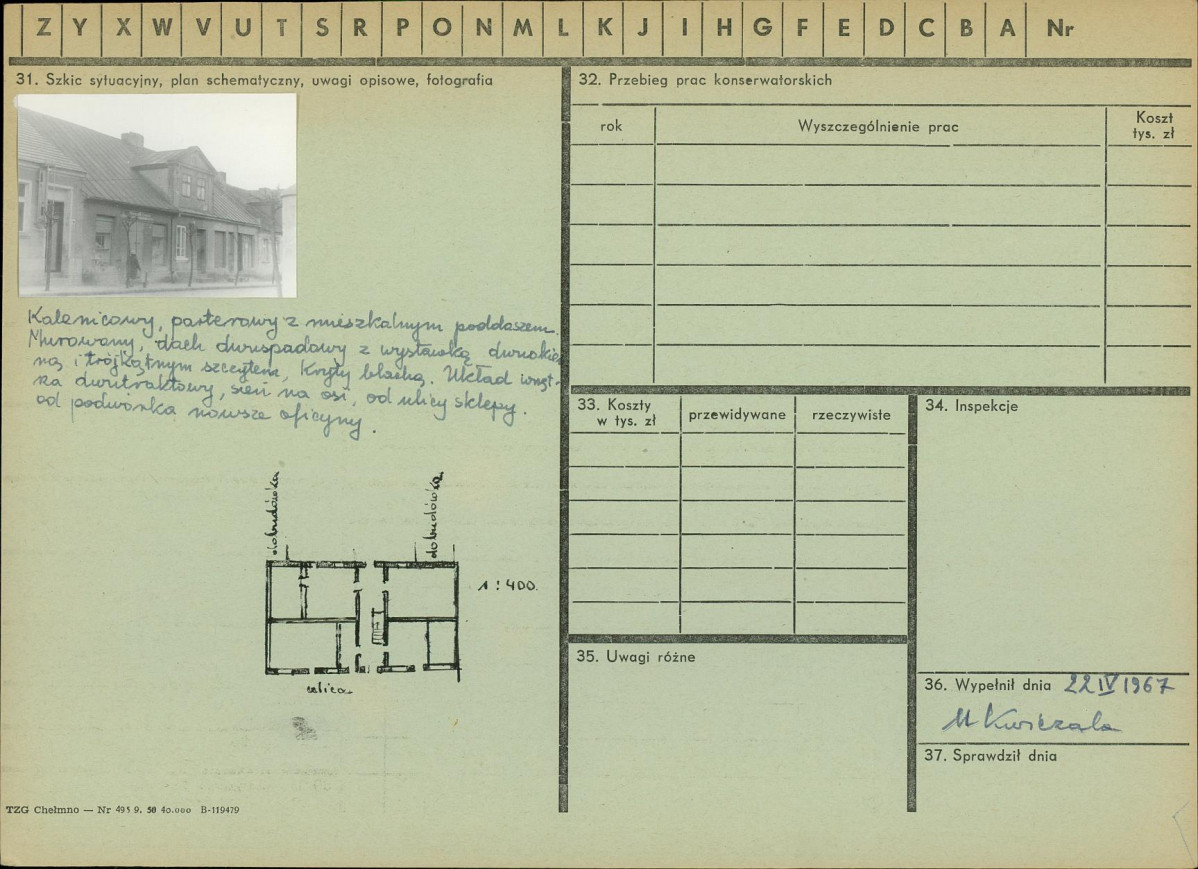 Z Y X W V U T S R P O N M L K J I H G F E D C B A Nr
31. Szkic sytuacyjny, plan schematyczny, uwagi opisowe, fotografia
Kalenicowy, parterowy z mieszkalnym poddaszem.
Murowany, dach dwuspadowy z wystawką dwuokien
ną i trójkątnym szczytem, kryty blachą. Układ wnęt-
rza dwutraktowy, sień na osi, od ulicy sklepy.
od podwórka nowsze oficyny.
dobudówka
dobudówka
1 : 400.
ulica
TZG Chełmno — Nr 493 9. 58 40.000 B-119479
32. Przebieg prac konserwatorskich
rok
Wyszczególnienie prac
Koszt
tys. zł
33. Koszty
w tys. zł
przewidywane
rzeczywiste
34. Inspekcje
35. Uwagi różne
36. Wypełnił dnia 22 IV 1967
M Kwiczala
37. Sprawdził dnia